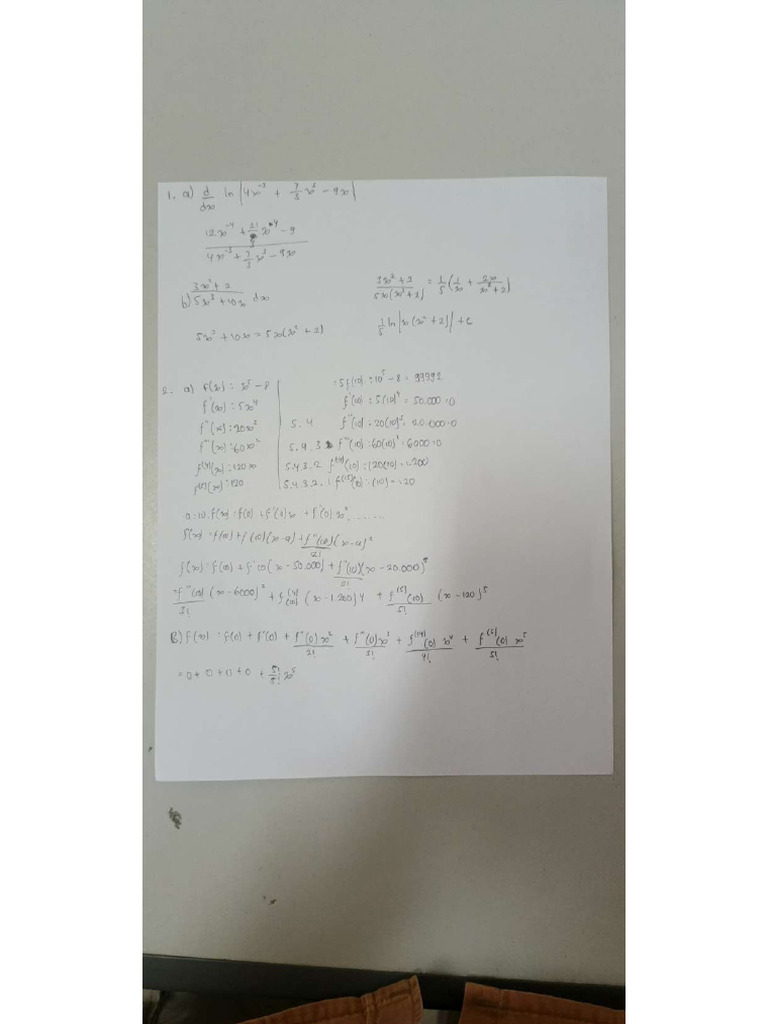 1. a) d/dx ln |4x^-3 + 7/3 x^3 - 9x|
12x^-4 + 21/ x^4 - 9
4x^-3 + 7/3 x^3 - 9x
b) 3x^2 + 2 / 5x^3 + 10x dx
5x^3 + 10x = 5x(x^2 + 2)
3x^2 + 2 / 5x(x^2 + 2) = 1/5 (1/x + 2x/x^2 + 2)
1/5 ln |x(x^2 + 2)| + c
2. a) f(x) : x^5 - 8
f'(x) : 5x^4
f''(x) : 20x^2
f'''(x) : 60x^2
f^(4)(x) : 120x
f^(5)(x) : 120
: 5f(10) : 10^5 - 8 = 99992
f'(10) : 5(10)^4 = 50.000 = 0
5.4 f''(10) : 20(10)^3 = 20.000 = 0
5.4.3 f'''(10) : 60(10)^2 : 6000 = 0
5.4.3.2 f^(4)(10) : 120(10) = 1.200
5.4.3.2.1 f^(5)(10) : (10) = 120
a = 10. f(x) : f(0) + f'(0)x + f'(0)x^2, ......
f(x) = f(a) + f'(10)(x-a) + f''(10)/2! (x-a)^2
f(x) : f(a) + f'(10)(x - 50.000) + f''(10)/2! (x - 20.000)^
= f'''(10)/3! (x - 6000)^2 + f^(4)(10) (x - 1.200)^4 + f^(5)(10)/5! (x - 120)^5
B) f(x) : f(0) + f'(0) + f''(0)x^2/2! + f'''(0)x^3/3! + f^(4)(0)x^4/4! + f^(5)(0)x^5/5!
= 0 + 0 + 0 + 0 + 5!/5! x^5